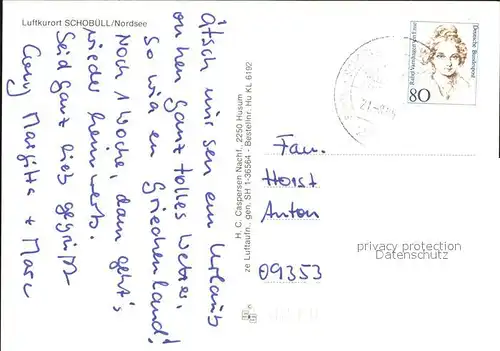 Luftkurort SCHOBÜLL/Nordsee
Ätsch wir sen em Urlaub
on hen ganz tolles Wetter.
So wia en Griechenland!
Noch 1 Woche, dann geht's
wieder heimwerts.
Seid ganz lieb gegrüßt
Conny Margitta + Marc
H. C. Caspersen Nachf., 2250 Husum
ze Luftaufn., gen. SH 1-36564 - Bestellnr. Hu KL 6182
Rahel Varnhagen von Ense
Deutsche Bundespost
80
Fam.
Horst
Anton
09353
privacy protection
Datenschutz